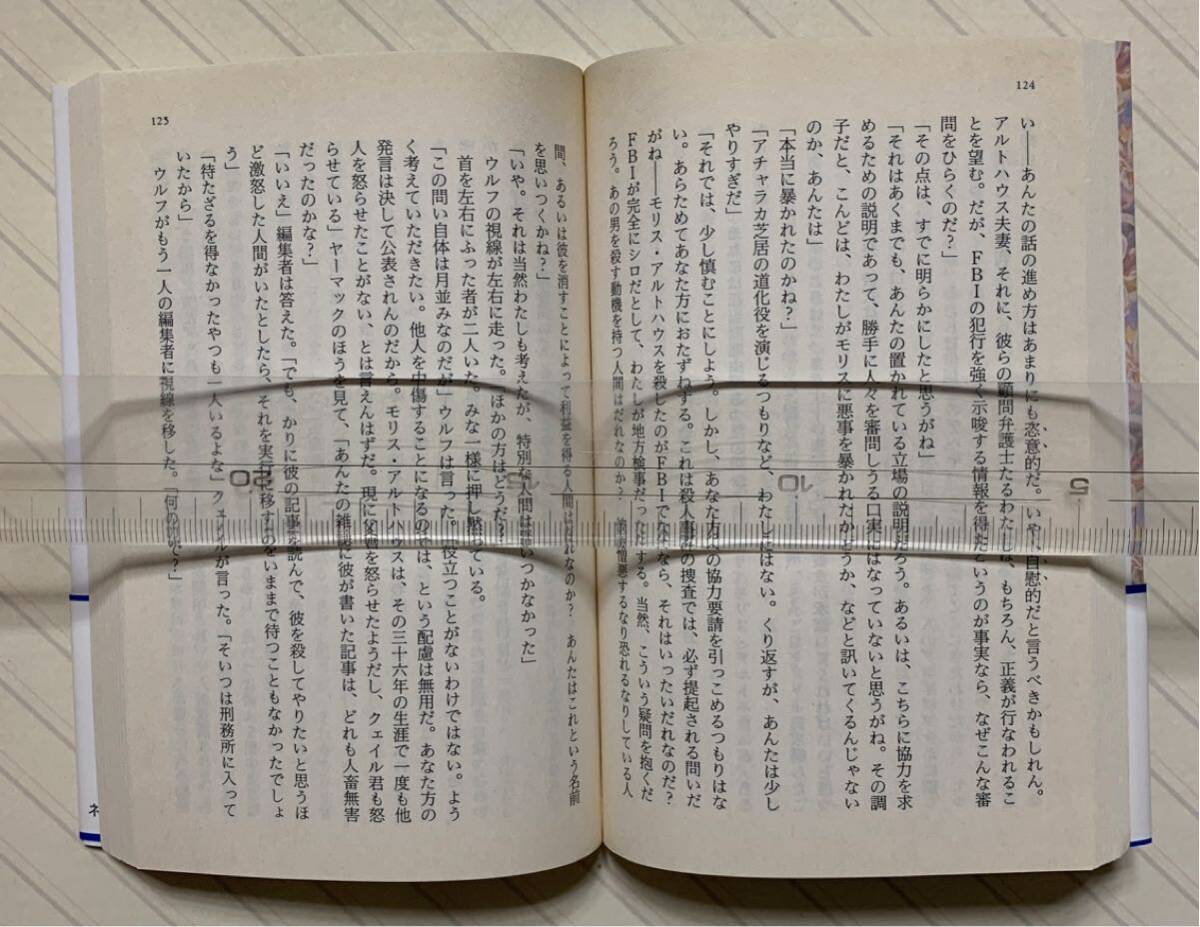 124
い――あんたの話の進め方はあまりにも恣意的だ。いや、自慰的だと言うべきかもしれん。
アルトハウス夫妻、それに、彼らの顧問弁護士たるわたしは、もちろん、正義が行なわれるこ
とを望む。だが、FBIの犯行を強く示唆する情報を得たいというのが事実なら、なぜこんな審
問をひらくのだ?」
「その点は、すでに明らかにしたと思うがね」
「それはあくまでも、あんたの置かれている立場の説明だろう。あるいは、こちらに協力を求
めるための説明であって、勝手に人々を審問しうる口実にはなっていないと思うがね。その調
子だと、こんどは、わたしがモリスに悪事を暴かれたかどうか、などと訊いてくるんじゃない
のか、あんたは」
「本当に暴かれたのかね?」
「アチャラカ芝居の道化役を演じるつもりなど、わたしにはない。くり返すが、あんたは少し
やりすぎだ」
「それでは、少し慎むことにしよう。しかし、あなた方への協力要請を引っこめるつもりはな
い。あらためてあなた方におたずねする。これは殺人事件の捜査では、必ず提起される問いだ
がね――モリス・アルトハウスを殺したのがFBIでないなら、それはいったいだれなのだ?
FBIが完全にシロだとして、わたしが地方検事だったとする。当然、こういう疑問を抱くだ
ろう。あの男を殺す動機を持つ人間はだれなのか? 彼を憎悪するなり恐れるなりしている人
125
間、あるいは彼を消すことによって利益を得る人間はだれなのか? あんたはこれという名前
を思いつくかね?」
「いや。それは当然わたしも考えたが、特別な人間は思いつかなかった」
ウルフの視線が左右に走った。「ほかの方はどうだ?」
首を左右にふった者が二人いた。みな一様に押し黙っている。
「この問い自体は月並みなのだが」ウルフは言った。「役立つことがないわけではない。よう
く考えていただきたい。他人を中傷することになるのでは、という配慮は無用だ。あなた方の
発言は決して公表されんのだから。モリス・アルトハウスは、その三十六年の生涯で一度も他
人を怒らせたことがない、とは言えんはずだ。現に父君を怒らせたようだし、クェイル君も怒
らせている」ヤーマックのほうを見て、「あんたの雑誌に彼が書いた記事は、どれも人畜無害
だったのかな?」
「いいえ」編集者は答えた。「でも、かりに彼の記事を読んで、彼を殺してやりたいと思うほ
ど激怒した人間がいたとしたら、それを実行に移すのをいままで待つこともなかったでしょ
う」
「待たざるを得なかったやつも一人いるよな」クェイルが言った。「そいつは刑務所に入って
いたから」
ウルフがもう一人の編集者に視線を移した。「何の罪で?」
ネ
5
10
15
20